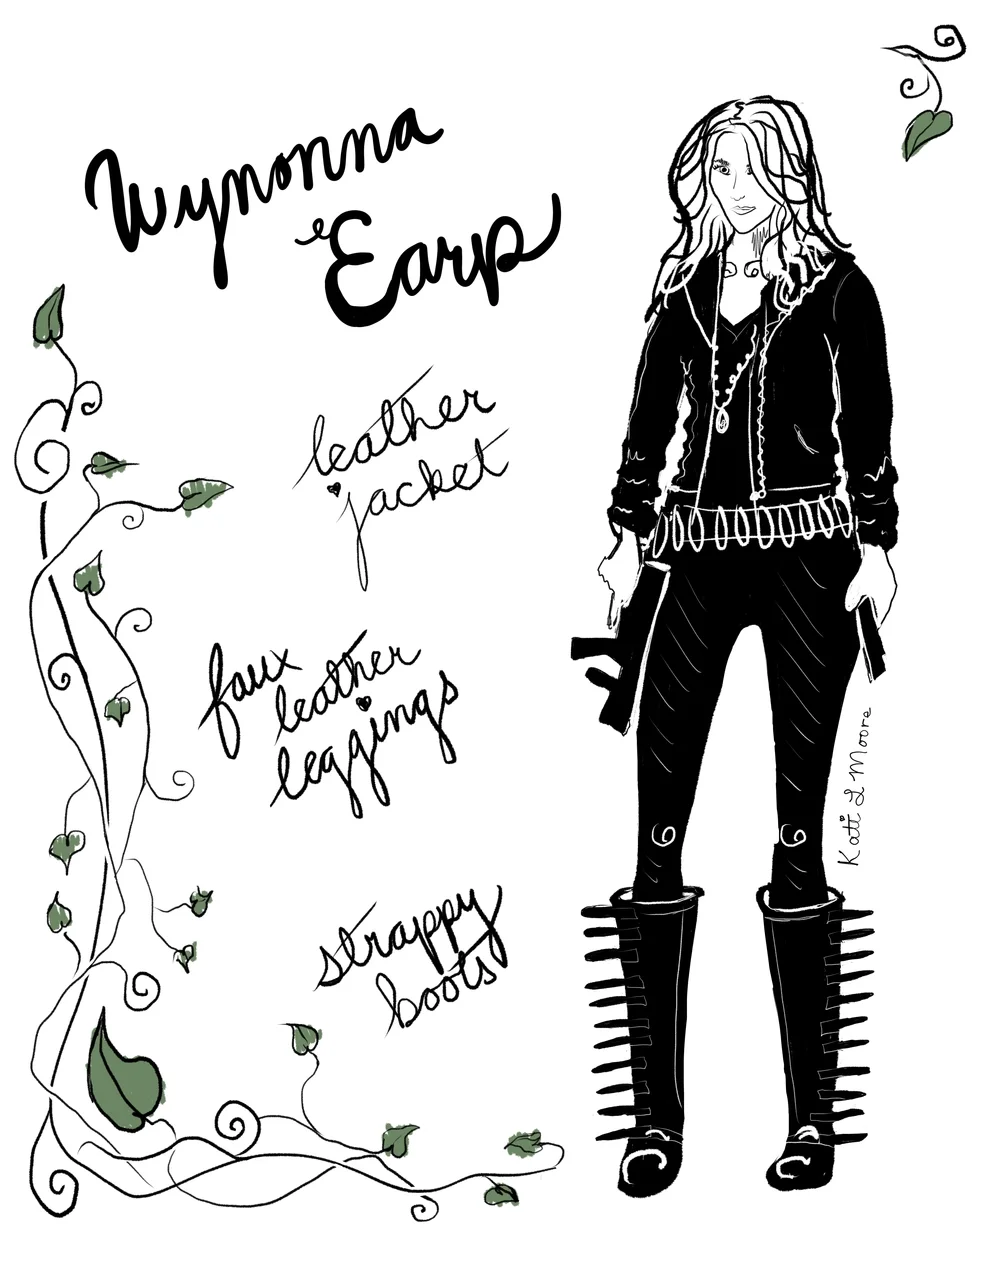 Wynonna
Earp
leather
jacket
faux
leather
leggings
strappy
boots
Kati L Moore